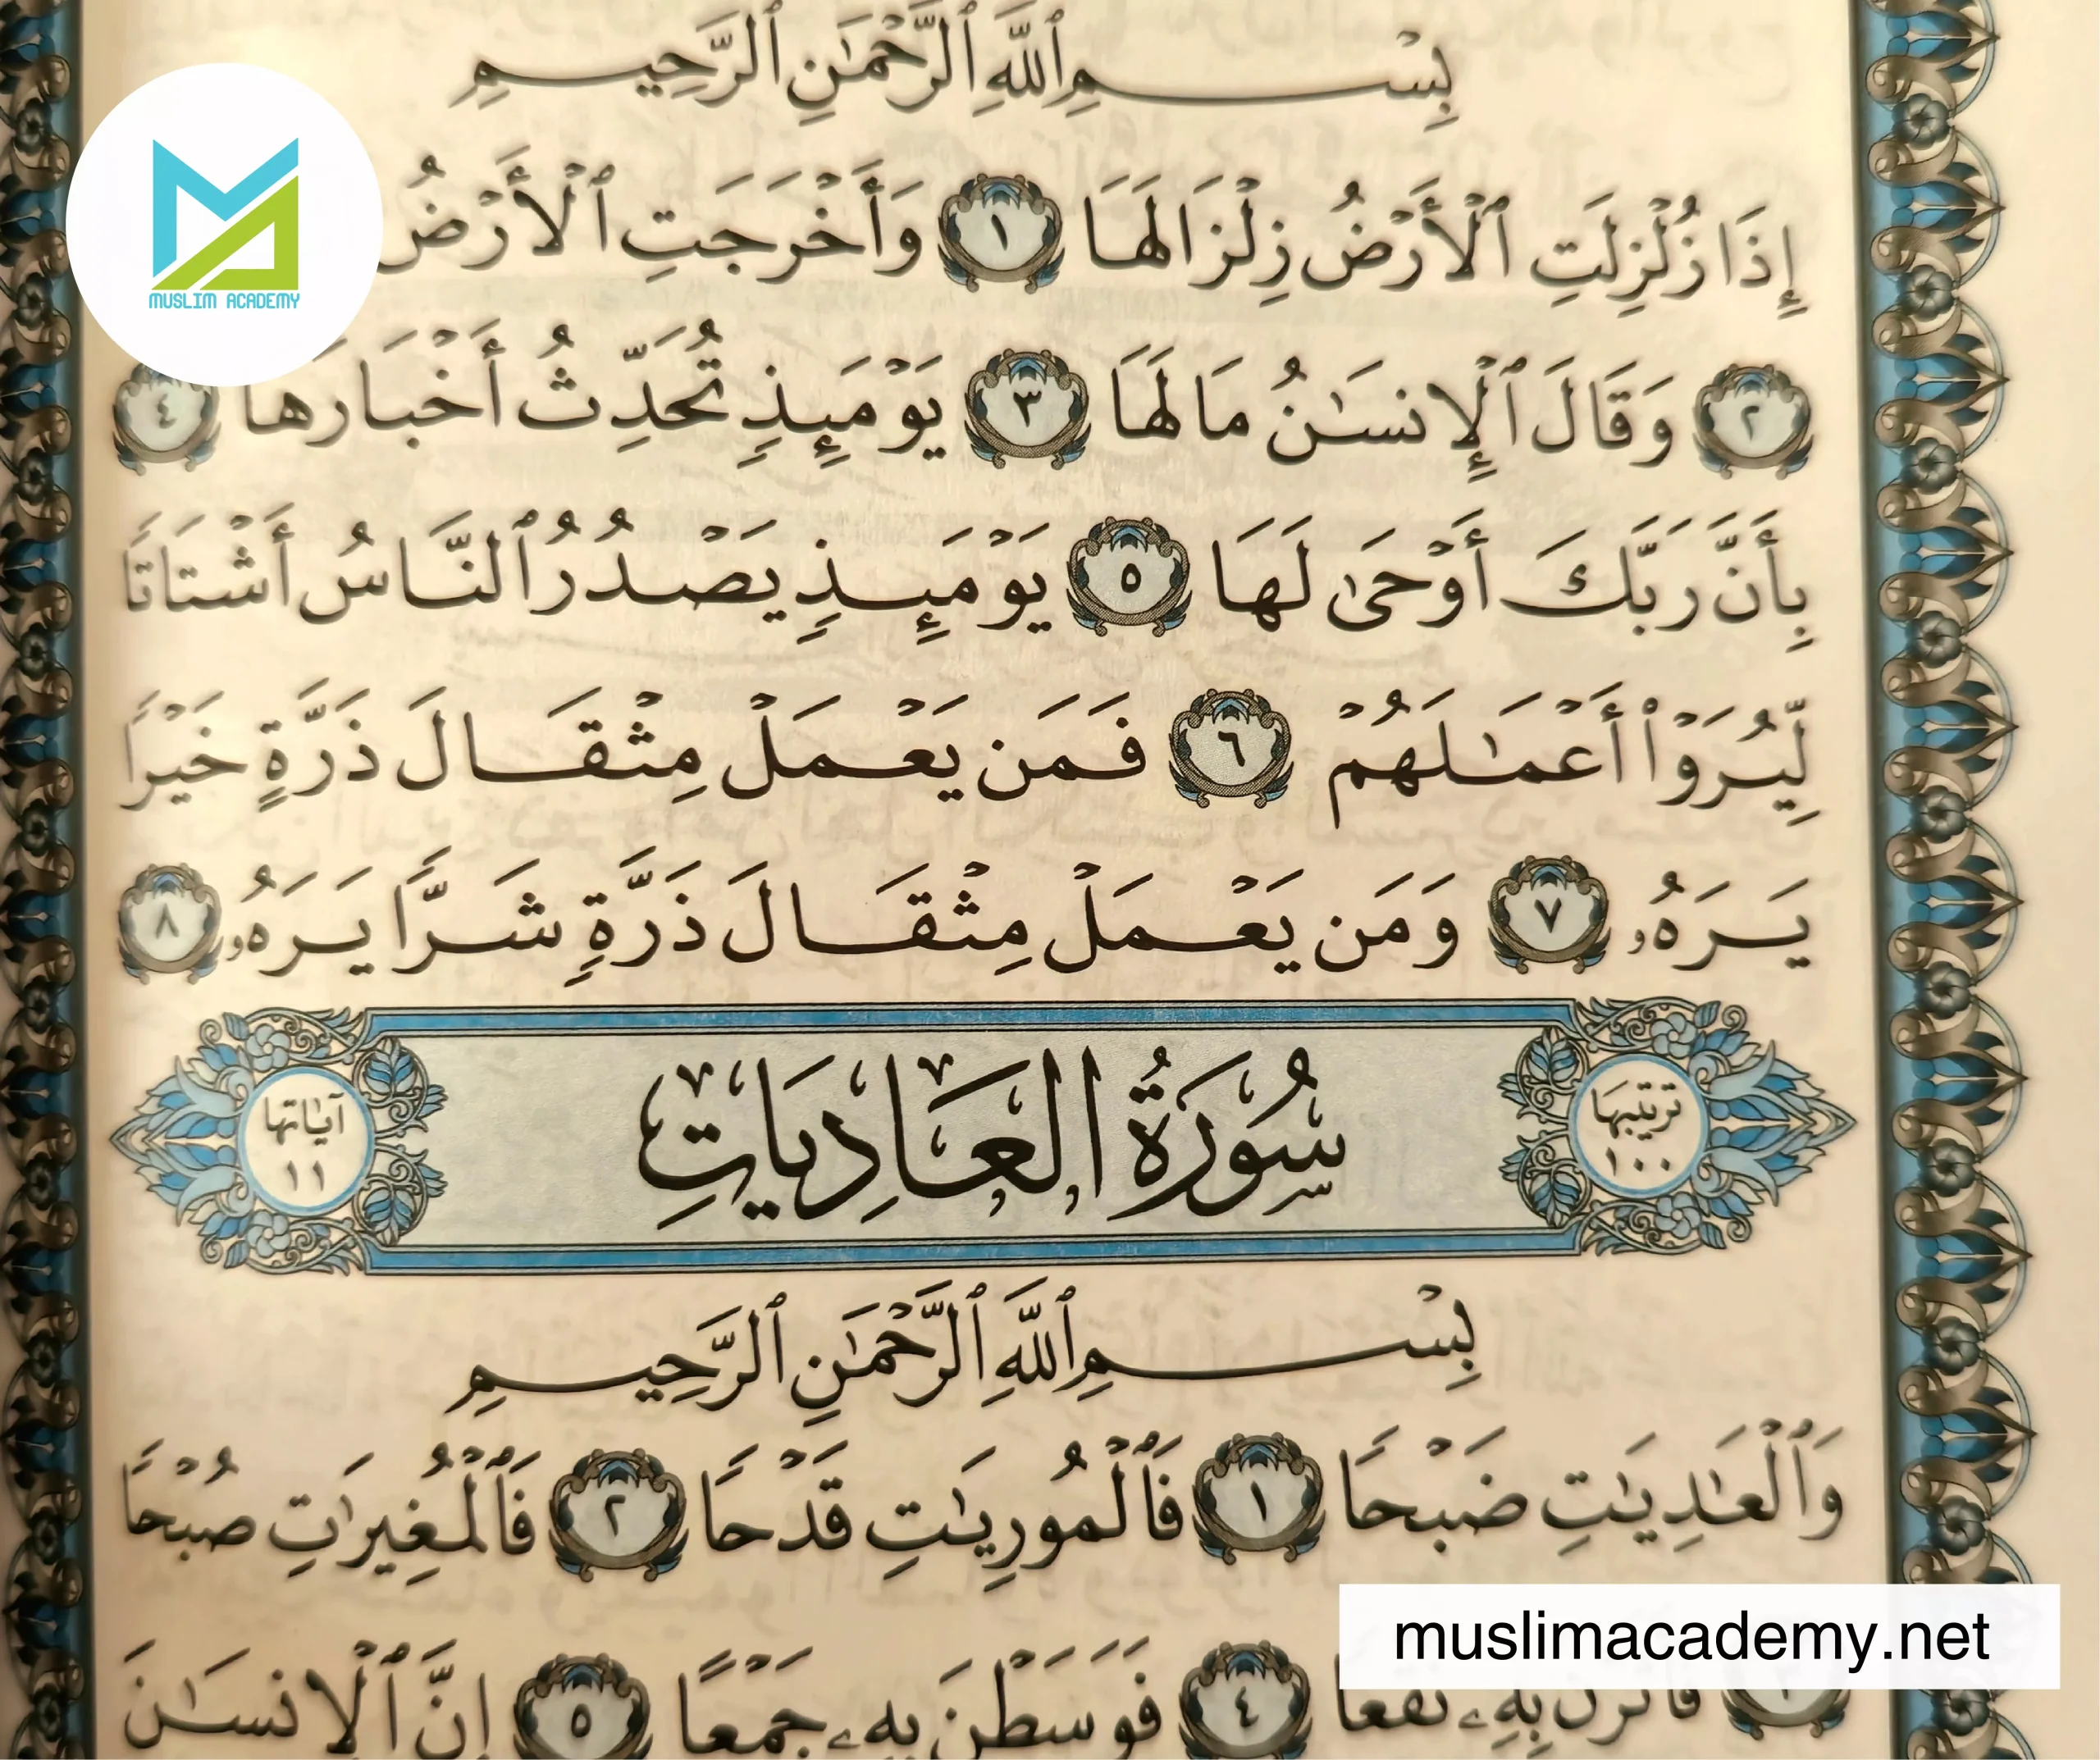 بِسْمِ ٱللَّهِ ٱلرَّحْمَٰنِ ٱلرَّحِيمِ
إِذَا زُلْزِلَتِ ٱلْأَرْضُ زِلْزَالَهَا ١ وَأَخْرَجَتِ ٱلْأَرْضُ
MUSLIM ACADEMY
٢ وَقَالَ ٱلْإِنسَٰنُ مَا لَهَا ٣ يَوْمَئِذٍ تُحَدِّثُ أَخْبَارَهَا ٤
بِأَنَّ رَبَّكَ أَوْحَىٰ لَهَا ٥ يَوْمَئِذٍ يَصْدُرُ ٱلنَّاسُ أَشْتَاتًا
لِّيُرَوْا۟ أَعْمَٰلَهُمْ ٦ فَمَن يَعْمَلْ مِثْقَالَ ذَرَّةٍ خَيْرًا
يَرَهُۥ ٧ وَمَن يَعْمَلْ مِثْقَالَ ذَرَّةٍ شَرًّا يَرَهُۥ ٨
ترتيبها ١٠٠
سُورَةُ العَادِيَاتِ
آياتها ١١
بِسْمِ ٱللَّهِ ٱلرَّحْمَٰنِ ٱلرَّحِيمِ
وَٱلْعَٰدِيَٰتِ ضَبْحًا ١ فَٱلْمُورِيَٰتِ قَدْحًا ٢ فَٱلْمُغِيرَٰتِ صُبْحًا
بِهِۦ نَقْعًا ٤ فَوَسَطْنَ بِهِۦ جَمْعًا ٥ إِنَّ ٱلْإِنسَٰنَ
muslimacademy.net